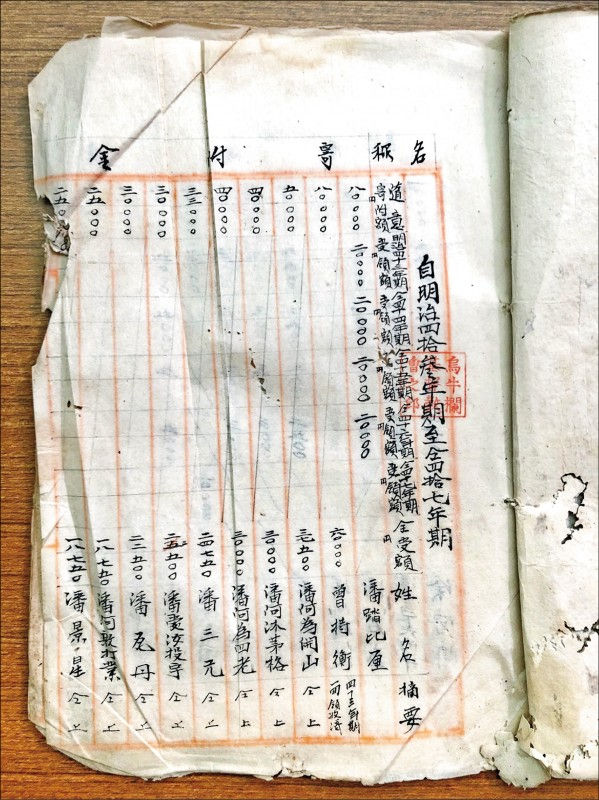 名稱寄付金
自明治四拾叁年期至仝四拾七年期
烏牛欄
隨意寄附額 明治四十三年期受領額 仝四十四年期受領額 仝四十五年期受領額 仝四十六年期受領額 仝四十七年期受領額 仝受額 姓名 摘要
八〇〇〇〇 二〇〇〇〇 二〇〇〇〇 二〇〇〇〇 二〇〇〇〇 潘踏比厘
八〇〇〇〇 六〇〇〇〇 曾持衡 四十三年期
五〇〇〇〇 三七五〇〇 潘阿為開山 仝上
四〇〇〇〇 三〇〇〇〇 潘阿沐茅格 仝上
四〇〇〇〇 三〇〇〇〇 潘阿為四老 仝上
三三〇〇〇 二四七五〇 潘三元 仝上
三〇〇〇〇 二二五〇〇 潘 仝上
三〇〇〇〇 二二五〇〇 潘尾丹 仝上
二五〇〇〇 一八七五〇 潘阿敦打業 仝上
二五〇〇〇 一八七五〇 潘景星 仝上